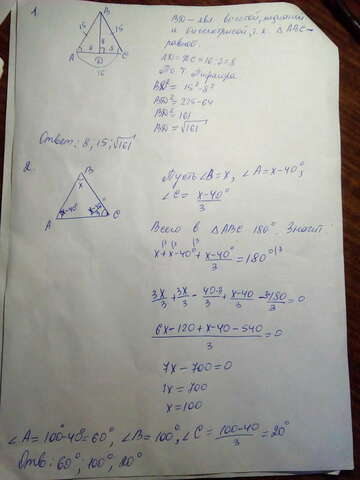 1.
B
15 15
8 8 8
A D C
16
BD - явл. высотой, медианой
и биссектрисой, т.к. △ABC -
равноб.
AD = DC = 16:2=8
По т. Пифагора
BD² = 15²-8²
BD² = 225-64
BD² = 161
BD = √161
Ответ: 8, 15; √161
2.
B
x
A x-40 C
Пусть ∠B = x, ∠A = x-40°,
∠C = x-40°/3
Всего в △ABC 180°. Значит
x + x-40° + x-40°/3 = 180° |·3
3x/3 + 3x/3 - 40·3/3 + x-40/3 - 3·180/3 = 0
6x-120+x-40-540/3 = 0
7x - 700 = 0
7x = 700
x = 100
∠A = 100°-40=60°, ∠B = 100°, ∠C = 100-40/3 = 20°
Отв: 60°, 100°, 20°